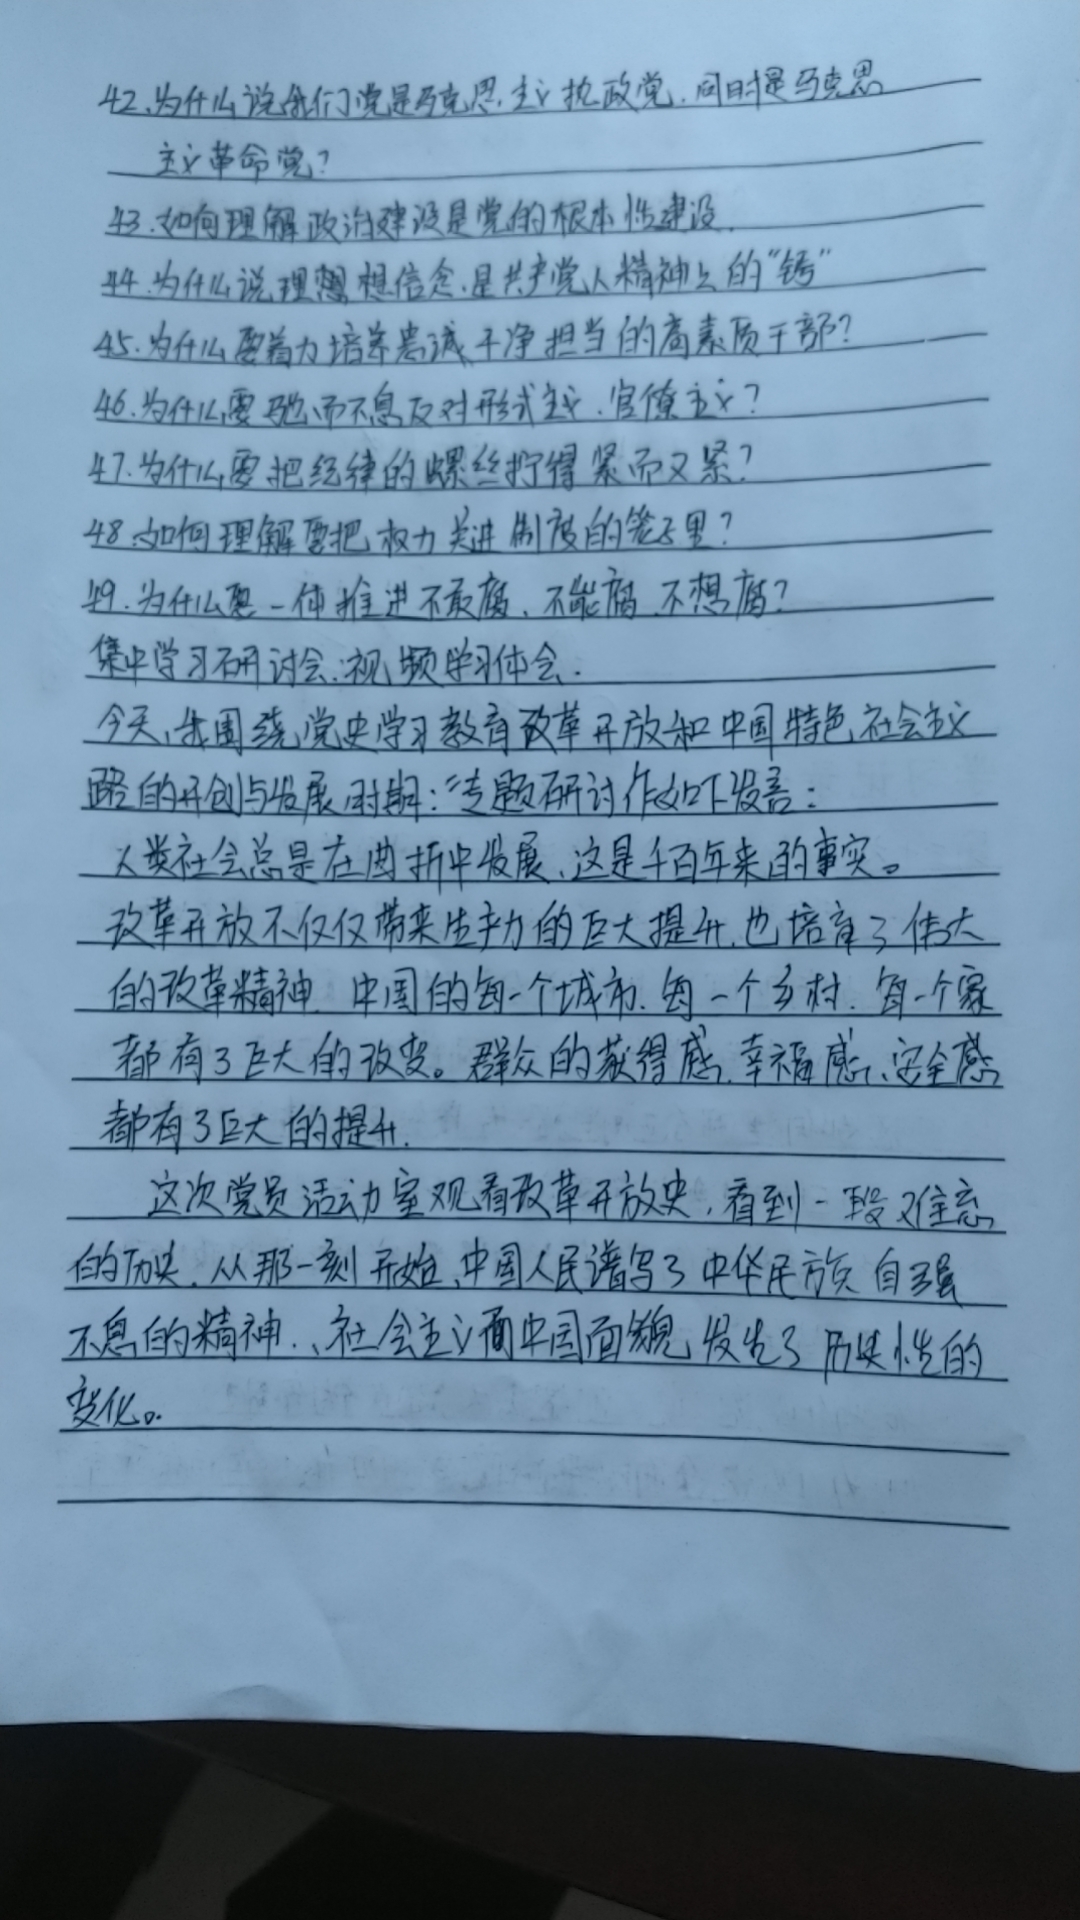 42.为什么说我们党是马克思主义执政党,同时是马克思
主义革命党?
43.如何理解政治建设是党的根本性建设.
44.为什么说理想想信念是共产党人精神上的"钙"
45.为什么要着力培养忠诚干净担当的高素质干部?
46.为什么要驰而不息反对形式主义、官僚主义?
47.为什么要把纪律的螺丝拧得紧而又紧?
48.如何理解要把权力关进制度的笼子里?
49.为什么要一体推进不敢腐、不能腐、不想腐?
集中学习研讨会:视频学习体会.
今天,我围绕党史学习教育改革开放和中国特色社会主义
路的开创与发展时期:"专题研讨作如下发言:
人类社会总是在曲折中发展、这是千百年来的事实。
改革开放不仅仅带来生产力的巨大提升,也培育了伟大
的改革精神.中国的每一个城市、每一个乡村.每一个家
都有了巨大的改变。群众的获得感、幸福感、安全感
都有了巨大的提升.
这次党员活动室观看改革开放史,看到一段难忘
的历史.从那一刻开始,中国人民谱写了中华民族自强
不息的精神.、社会主义面中国面貌发生了历史性的
变化。